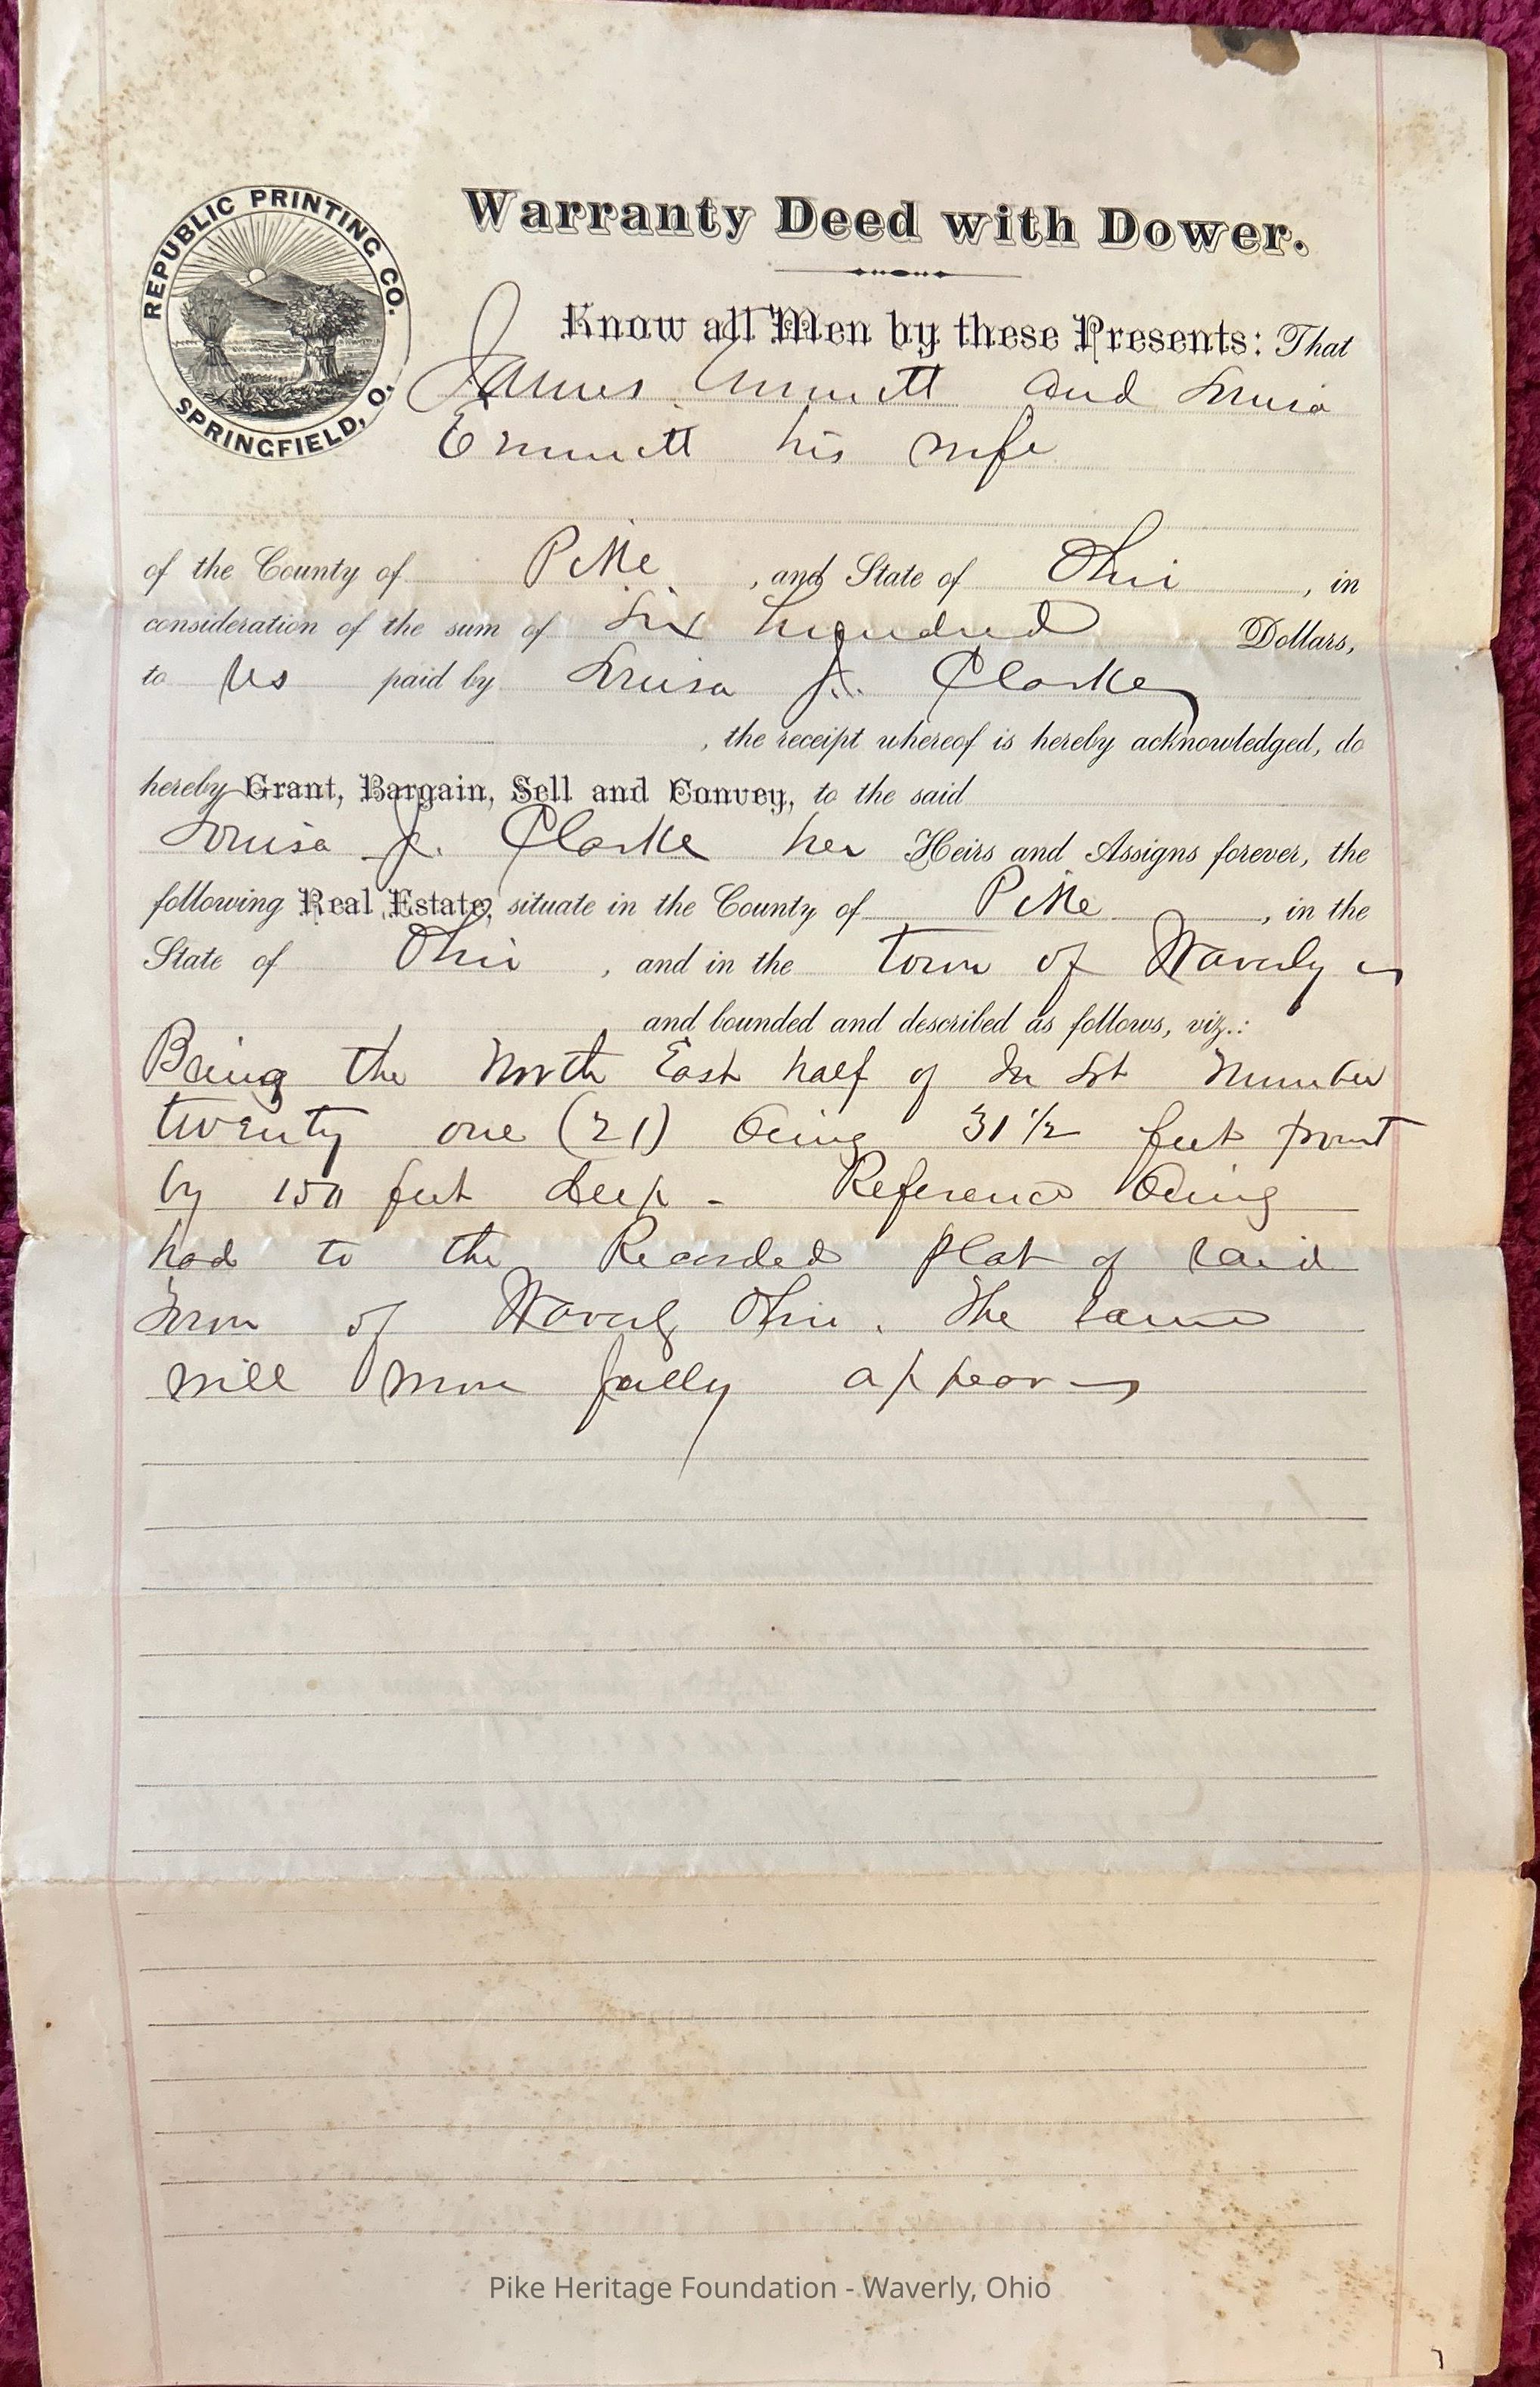 REPUBLIC PRINTING CO.
SPRINGFIELD, O.
Warranty Deed with Dower.
Know all Men by these Presents: That
James Emmitt and Louisa
Emmitt his wife
of the County of Pike, and State of Ohio, in
consideration of the sum of Six hundred Dollars,
to us paid by Louisa J. Clarke
, the receipt whereof is hereby acknowledged, do
hereby Grant, Bargain, Sell and Convey, to the said
Louisa J. Clarke her Heirs and Assigns forever, the
following Real Estate, situate in the County of Pike, in the
State of Ohio, and in the town of Waverly
and bounded and described as follows, viz.:
Being the North East half of In Lot Number
twenty one (21) being 31 1/2 feet front
by 150 feet deep - Reference being
had to the Recorded plat of said
Town of Waverly Ohio. The same
will more fully appear
Pike Heritage Foundation - Waverly, Ohio